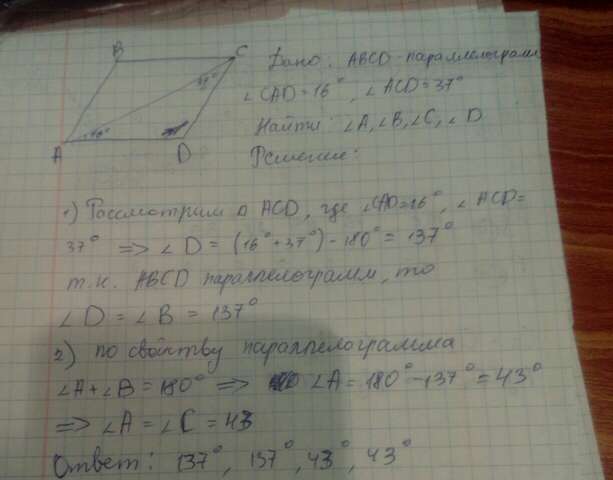 B
C
37°
A
16°
D
Дано: ABCD - параллелограмм
∠CAD=16°, ∠ACD=37°
Найти: ∠A, ∠B, ∠C, ∠D
Решение:
1) Рассмотрим Δ ACD, где ∠CAD=16°, ∠ACD=
37° => ∠D = (16°+37°)-180° = 137°
т.к. ABCD параллелограмм, то
∠D = ∠B = 137°
2) по свойству параллелограмма
∠A+∠B=180° => ∠A=180°-137°=43°
=> ∠A=∠C=43
Ответ: 137°, 137°, 43°, 43°